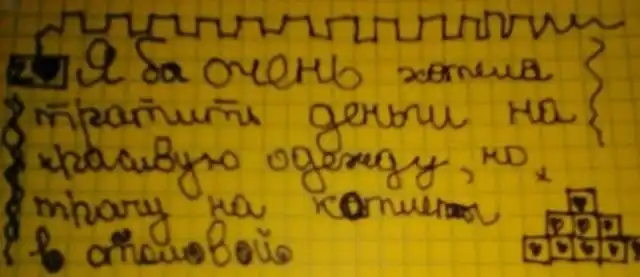 Я ба очень хотела
тратить деньги на
красивую одежду, но
трачу на котлеты
в столовой.